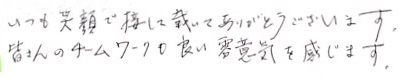 いつも笑顔で接して戴いてありがとうございます。
皆さんのチームワークも良い雰意気を感じます。